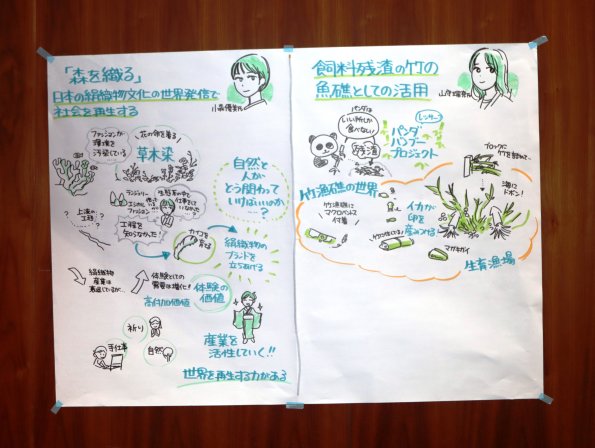 「森を織る」
日本の絹織物文化の世界発信で
社会を再生する
ファッションが
環境を
汚染している
花の命を着る
草木染
ランジェリー
エシカル
ファッション
生態系の中で
仕事をして
いなかった
上流の
工程?
工程を
知らなかった!
自然と
人が
どう関わって
いけばいいのか
…?
カイコを
育る
絹織物の
ブランドを
立ちあげる
絹織物
産業は
衰退しているが…
体験としての
需要は増化!
高付加価値
体験の
価値
祈り
手仕事
自然
産業を
活性していく!!
世界を再生する力がある
飼料残渣の竹の
魚礁としての活用
パンダは
いい所しか
食べない!
残渣
レッサー
パンダ
バンブー
プロジェクト
ブロックに
竹を詰めて…
海に
ドボン!
竹漁礁の世界
竹漁礁に
マクロベントス
付着
イカが
卵を
産みつける
マガキガイ
生育漁場